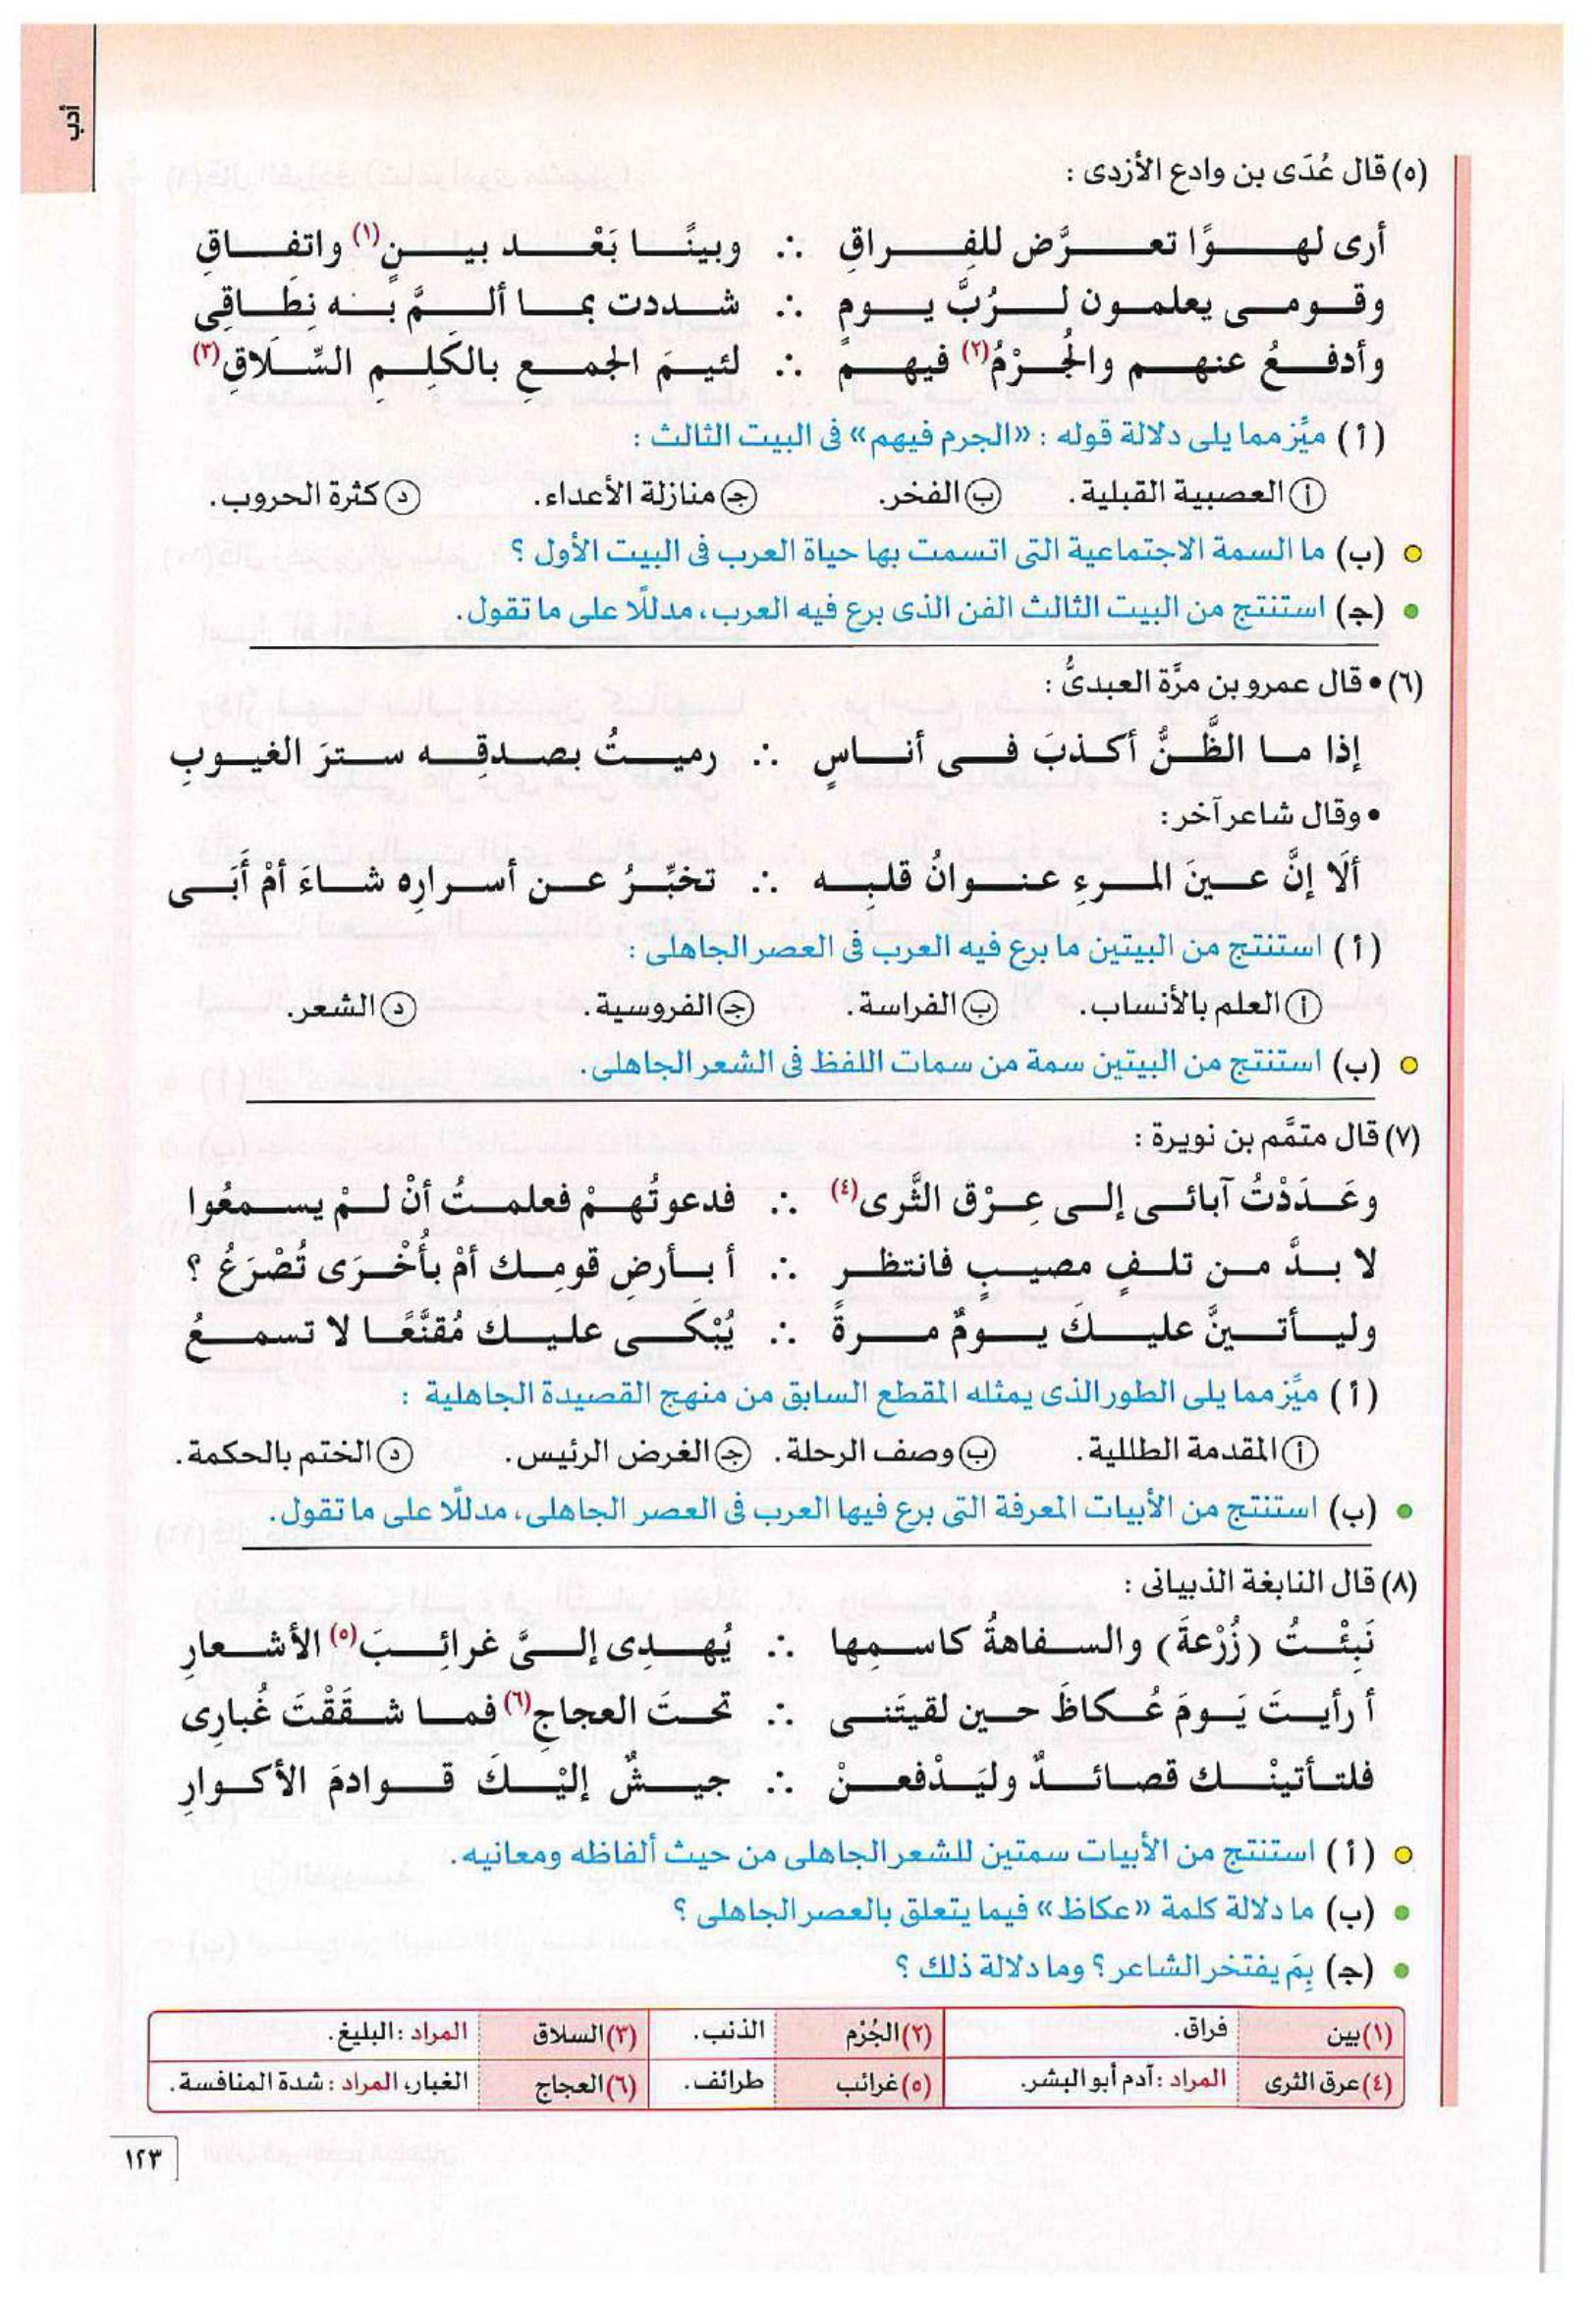 أدب
(٥) قال عُدَى بن وادع الأزدى :
أرى لهــوًا تعــرَّض للفِــراقِ ∴ وبينًــا بَعْــد بيــنٍ(١) واتفــاقِ
وقـومـى يعلمـون لــرُبَّ يــومٍ ∴ شــددت بمـا ألــمَّ بــه نِطَـاقِى
وأدفــعُ عنهـم والجُــرْمُ(٢) فيهـم ∴ لئيـمَ الجمـعِ بالكَلِـمِ السِّـلَاقِ(٣)
(أ) ميِّز مما يلى دلالة قوله : «الجرم فيهم» فى البيت الثالث :
أ العصبية القبلية. ب الفخر. ج منازلة الأعداء. د كثرة الحروب.
(ب) ما السمة الاجتماعية التى اتسمت بها حياة العرب فى البيت الأول ؟
(ج) استنتج من البيت الثالث الفن الذى برع فيه العرب، مدللًا على ما تقول.
(٦) • قال عمرو بن مرَّة العبدىُّ :
إذا مـا الظَّـنُّ أكـذبَ فـى أنـاسٍ ∴ رميـتُ بصـدقِـه سـترَ الغيـوبِ
• وقال شاعر آخر :
ألَا إنَّ عـينَ المـرءِ عنـوانُ قلبِـه ∴ تخبِّـرُ عـن أسـرارِه شـاءَ أمْ أَبَـى
(أ) استنتج من البيتين ما برع فيه العرب فى العصر الجاهلى :
أ العلم بالأنساب. ب الفراسة. ج الفروسية. د الشعر.
(ب) استنتج من البيتين سمة من سمات اللفظ فى الشعر الجاهلى.
(٧) قال متمَّم بن نويرة :
وعَـدَدْتُ آبائـى إلـى عِـرْق الثَّرى(٤) ∴ فدعوتُهـمْ فعلمـتُ أنْ لـمْ يسـمعُوا
لا بـدَّ مـن تلـفٍ مصيـبٍ فانتظـر ∴ أ بـأرضِ قومِـك أمْ بأُخْـرَى تُصْرَعُ ؟
وليـأتـينَّ عليـكَ يـومٌ مـرةً ∴ يُبْكَـى عليـك مُقنَّعًـا لا تسمـعُ
(أ) ميِّز مما يلى الطور الذى يمثله المقطع السابق من منهج القصيدة الجاهلية :
أ المقدمة الطللية. ب وصف الرحلة. ج الغرض الرئيس. د الختم بالحكمة.
(ب) استنتج من الأبيات المعرفة التى برع فيها العرب فى العصر الجاهلى، مدللًا على ما تقول.
(٨) قال النابغة الذبيانى :
نَبِئْـتُ (زُرْعةَ) والسـفاهةُ كاسـمِها ∴ يُهـدِى إلـىَّ غرائـبَ(٥) الأشـعارِ
أ رأيـتَ يَـومَ عُـكاظَ حـين لقيتَنـى ∴ تحـتَ العجاجِ(٦) فمـا شـقَقْتَ غُبارِى
فلتـأتينْـك قصائـدٌ وليَـدْفعـنْ ∴ جيـشٌ إليْـكَ قـوادمَ الأكـوارِ
(أ) استنتج من الأبيات سمتين للشعر الجاهلى من حيث ألفاظه ومعانيه.
(ب) ما دلالة كلمة «عكاظ» فيما يتعلق بالعصر الجاهلى ؟
(ج) بِمَ يفتخر الشاعر ؟ وما دلالة ذلك ؟
(١) بين فراق. (٢) الجُرْم الذنب. (٣) السلاق المراد : البليغ.
(٤) عرق الثرى المراد : آدم أبو البشر. (٥) غرائب طرائف. (٦) العجاج الغبار، المراد : شدة المنافسة.
١٢٣